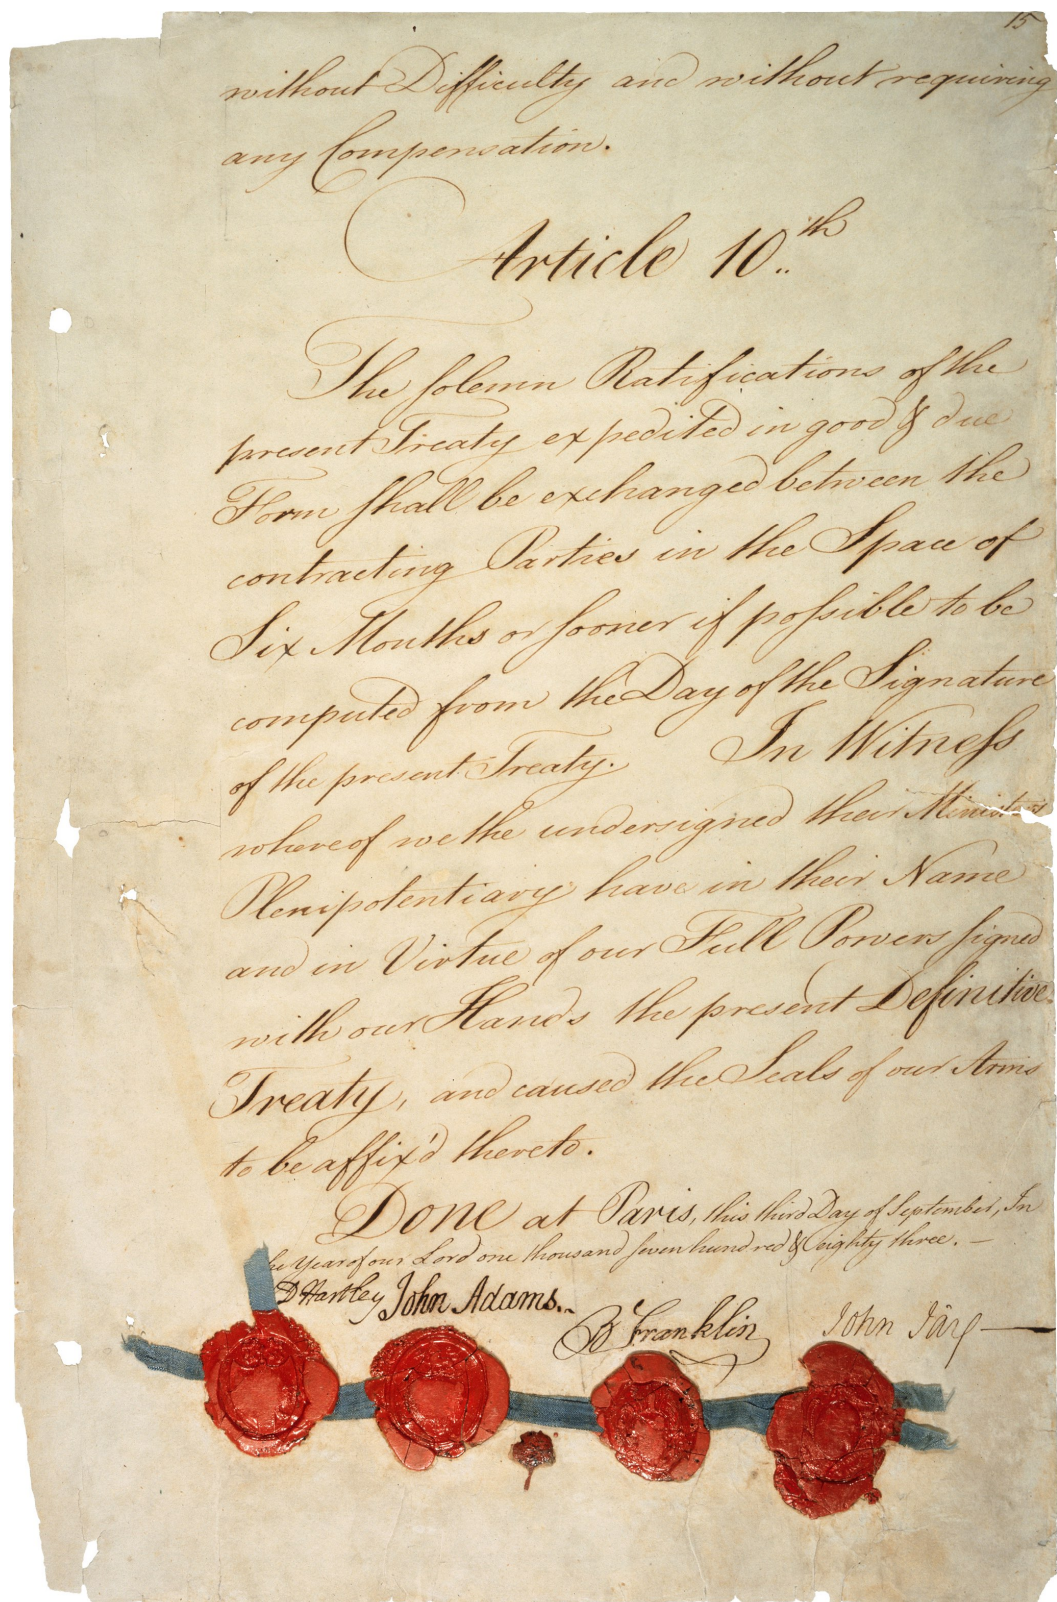 15
without Difficulty and without requiring
any Compensation.
Article 10.th
The solemn Ratifications of the
present Treaty expedited in good & due
Form shall be exchanged between the
contracting Parties in the Space of
Six Months or sooner if possible to be
computed from the Day of the Signature
of the present Treaty. In Witness
whereof we the undersigned their Ministers
Plenipotentiary have in their Name
and in Virtue of our Full Powers signed
with our Hands the present Definitive
Treaty, and caused the Seals of our Arms
to be affix'd thereto.
Done at Paris, this third Day of September, In
the Year of our Lord one thousand seven hundred & eighty three. —
D Hartley John Adams.
B Franklin John Jay